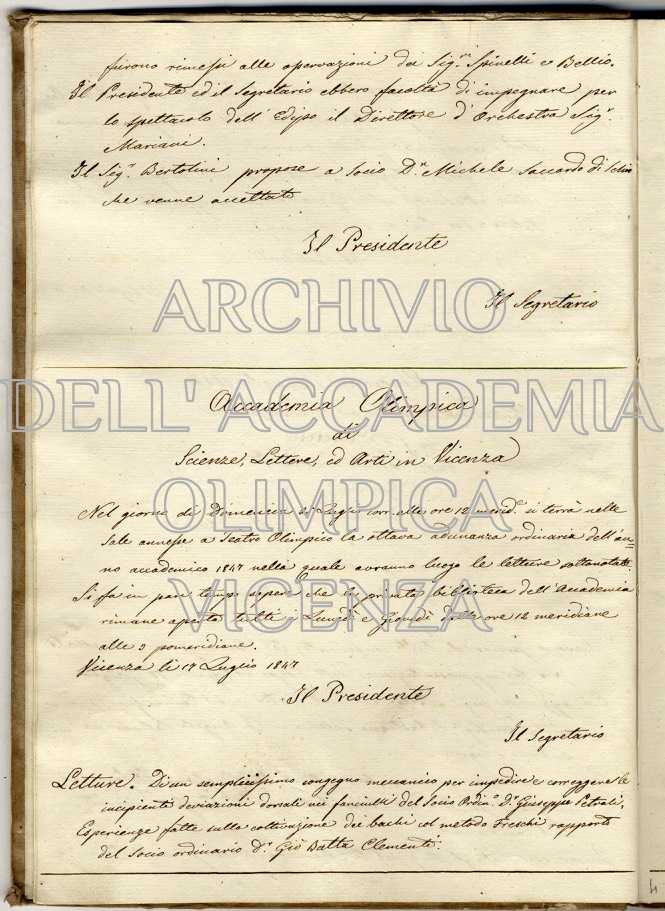 furono rimessi alle operazioni dei Sig.ri Spinelli e Bellio.
Il Presidente ed il Segretario ebbero facoltà di impegnare per
lo spettacolo dell' Edipo il Direttore d' Orchestra Sig.r
Mariani.
Il Sig.r Bertolini propose a socio D.r Michele Saccardo di Schio
che venne accettato
Il Presidente
Il Segretario
ARCHIVIO
DELL' ACCADEMIA
OLIMPICA
VICENZA
Accademia Olimpica
di
Scienze, Lettere, ed Arti in Vicenza
Nel giorno di Domenica Luglio corr. alle ore 12 merid.e si terrà nelle
sale annesse a Teatro Olimpico la ottava adunanza ordinaria dell' an-
no accademico 1847 nella quale avranno luogo le letture sottonotate.
Si fa in pari tempo sapere che la privata biblioteca dell' Accademia
rimane aperta tutti i Lunedì e Giovedì dalle ore 12 meridiane
alle 3 pomeridiane.
Vicenza li 17 Luglio 1847
Il Presidente
Il Segretario
Letture. Di un semplicissimo congegno meccanico per impedire e correggere le
incipienti deviazioni dorsali nei fanciulli del Socio Ordin.o D.r Giuseppe
Esperienze fatte sulla coltivazione dei bachi col metodo Freschi rapporto
del Socio ordinario D.r Gio Batta Clementi.